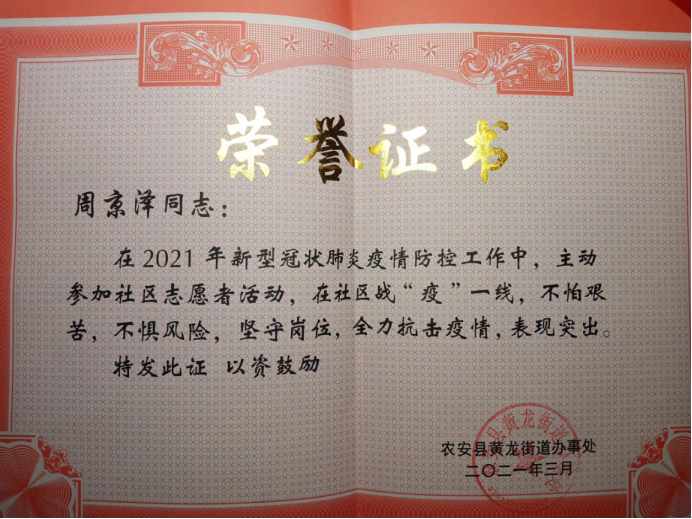 荣誉证书
周京泽同志：
在2021年新型冠状肺炎疫情防控工作中，主动
参加社区志愿者活动，在社区战“疫”一线，不怕艰
苦，不惧风险，坚守岗位，全力抗击疫情，表现突出。
特发此证 以资鼓励
农安县黄龙街道办事处
二〇二一年三月